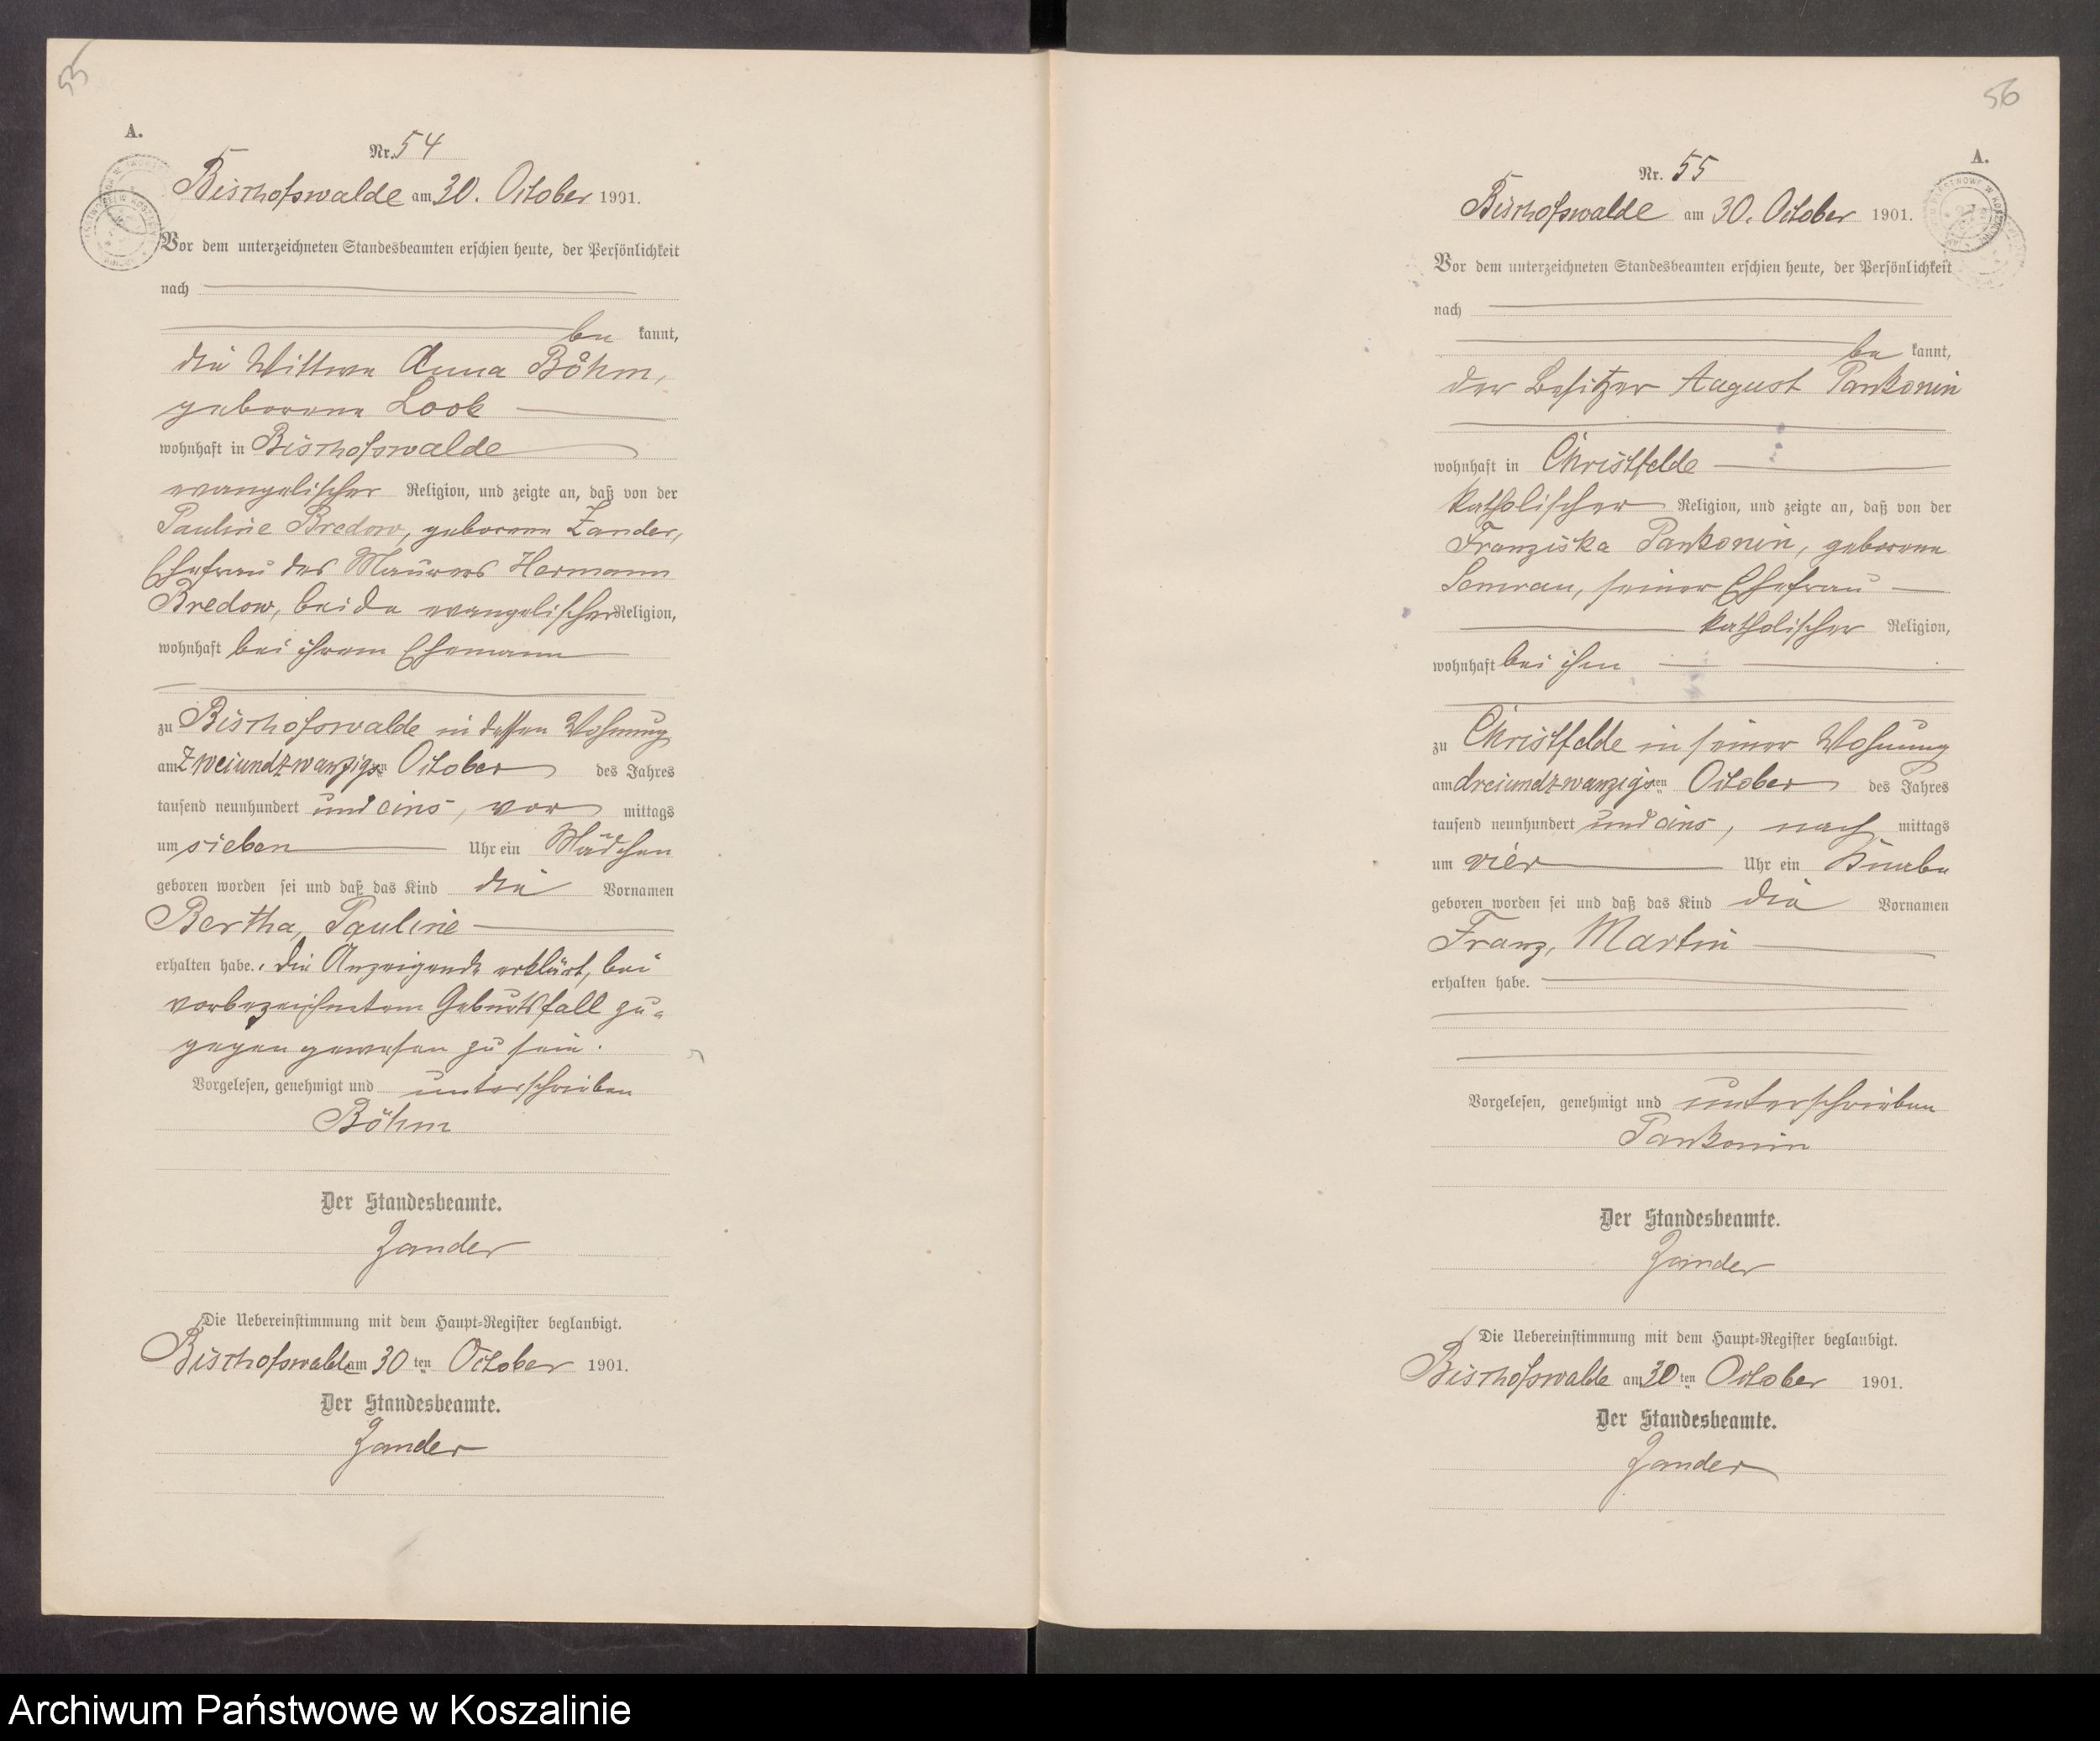 55
A.
Nr. 54
Bischofswalde am 30. October 1901.
Vor dem unterzeichneten Standesbeamten erschien heute, der Persönlichkeit
nach
be kannt,
die Wittwe Anna Böhm,
geborene Look
wohnhaft in Bischofswalde
evangelischer Religion, und zeigte an, daß von der
Pauline Bredow, geborene Zander,
Ehefrau des Maurers Hermann
Bredow, beide evangelischer Religion,
wohnhaft bei ihrem Ehemann
zu Bischofswalde in dessen Wohnung
am zweiundzwanzigsten October des Jahres
tausend neunhundert und eins, vor mittags
um sieben Uhr ein Mädchen
geboren worden sei und daß das Kind die Vornamen
Bertha, Pauline
erhalten habe. Die Anzeigende erklärt, bei
vorbezeichnetem Geburtsfall zu-
gegen gewesen zu sein.
Vorgelesen, genehmigt und unterschrieben
Böhm
Der Standesbeamte.
Zander
Die Uebereinstimmung mit dem Haupt-Register beglaubigt.
Bischofswalde am 30 ten October 1901.
Der Standesbeamte.
Zander
56
A.
Nr. 55
Bischofswalde am 30. October 1901.
Vor dem unterzeichneten Standesbeamten erschien heute, der Persönlichkeit
nach
be kannt,
der Besitzer August Pankonin
wohnhaft in Christfelde
katholischer Religion, und zeigte an, daß von der
Franziska Pankonin, geborene
Semrau, seiner Ehefrau
katholischer Religion,
wohnhaft bei ihm
zu Christfelde in seiner Wohnung
am dreiundzwanzigsten October des Jahres
tausend neunhundert und eins, nach mittags
um vier Uhr ein Knabe
geboren worden sei und daß das Kind die Vornamen
Franz, Martin
erhalten habe.
Vorgelesen, genehmigt und unterschrieben
Pankonin
Der Standesbeamte.
Zander
Die Uebereinstimmung mit dem Haupt-Register beglaubigt.
Bischofswalde am 30 ten October 1901.
Der Standesbeamte.
Zander
Archiwum Państwowe w Koszalinie